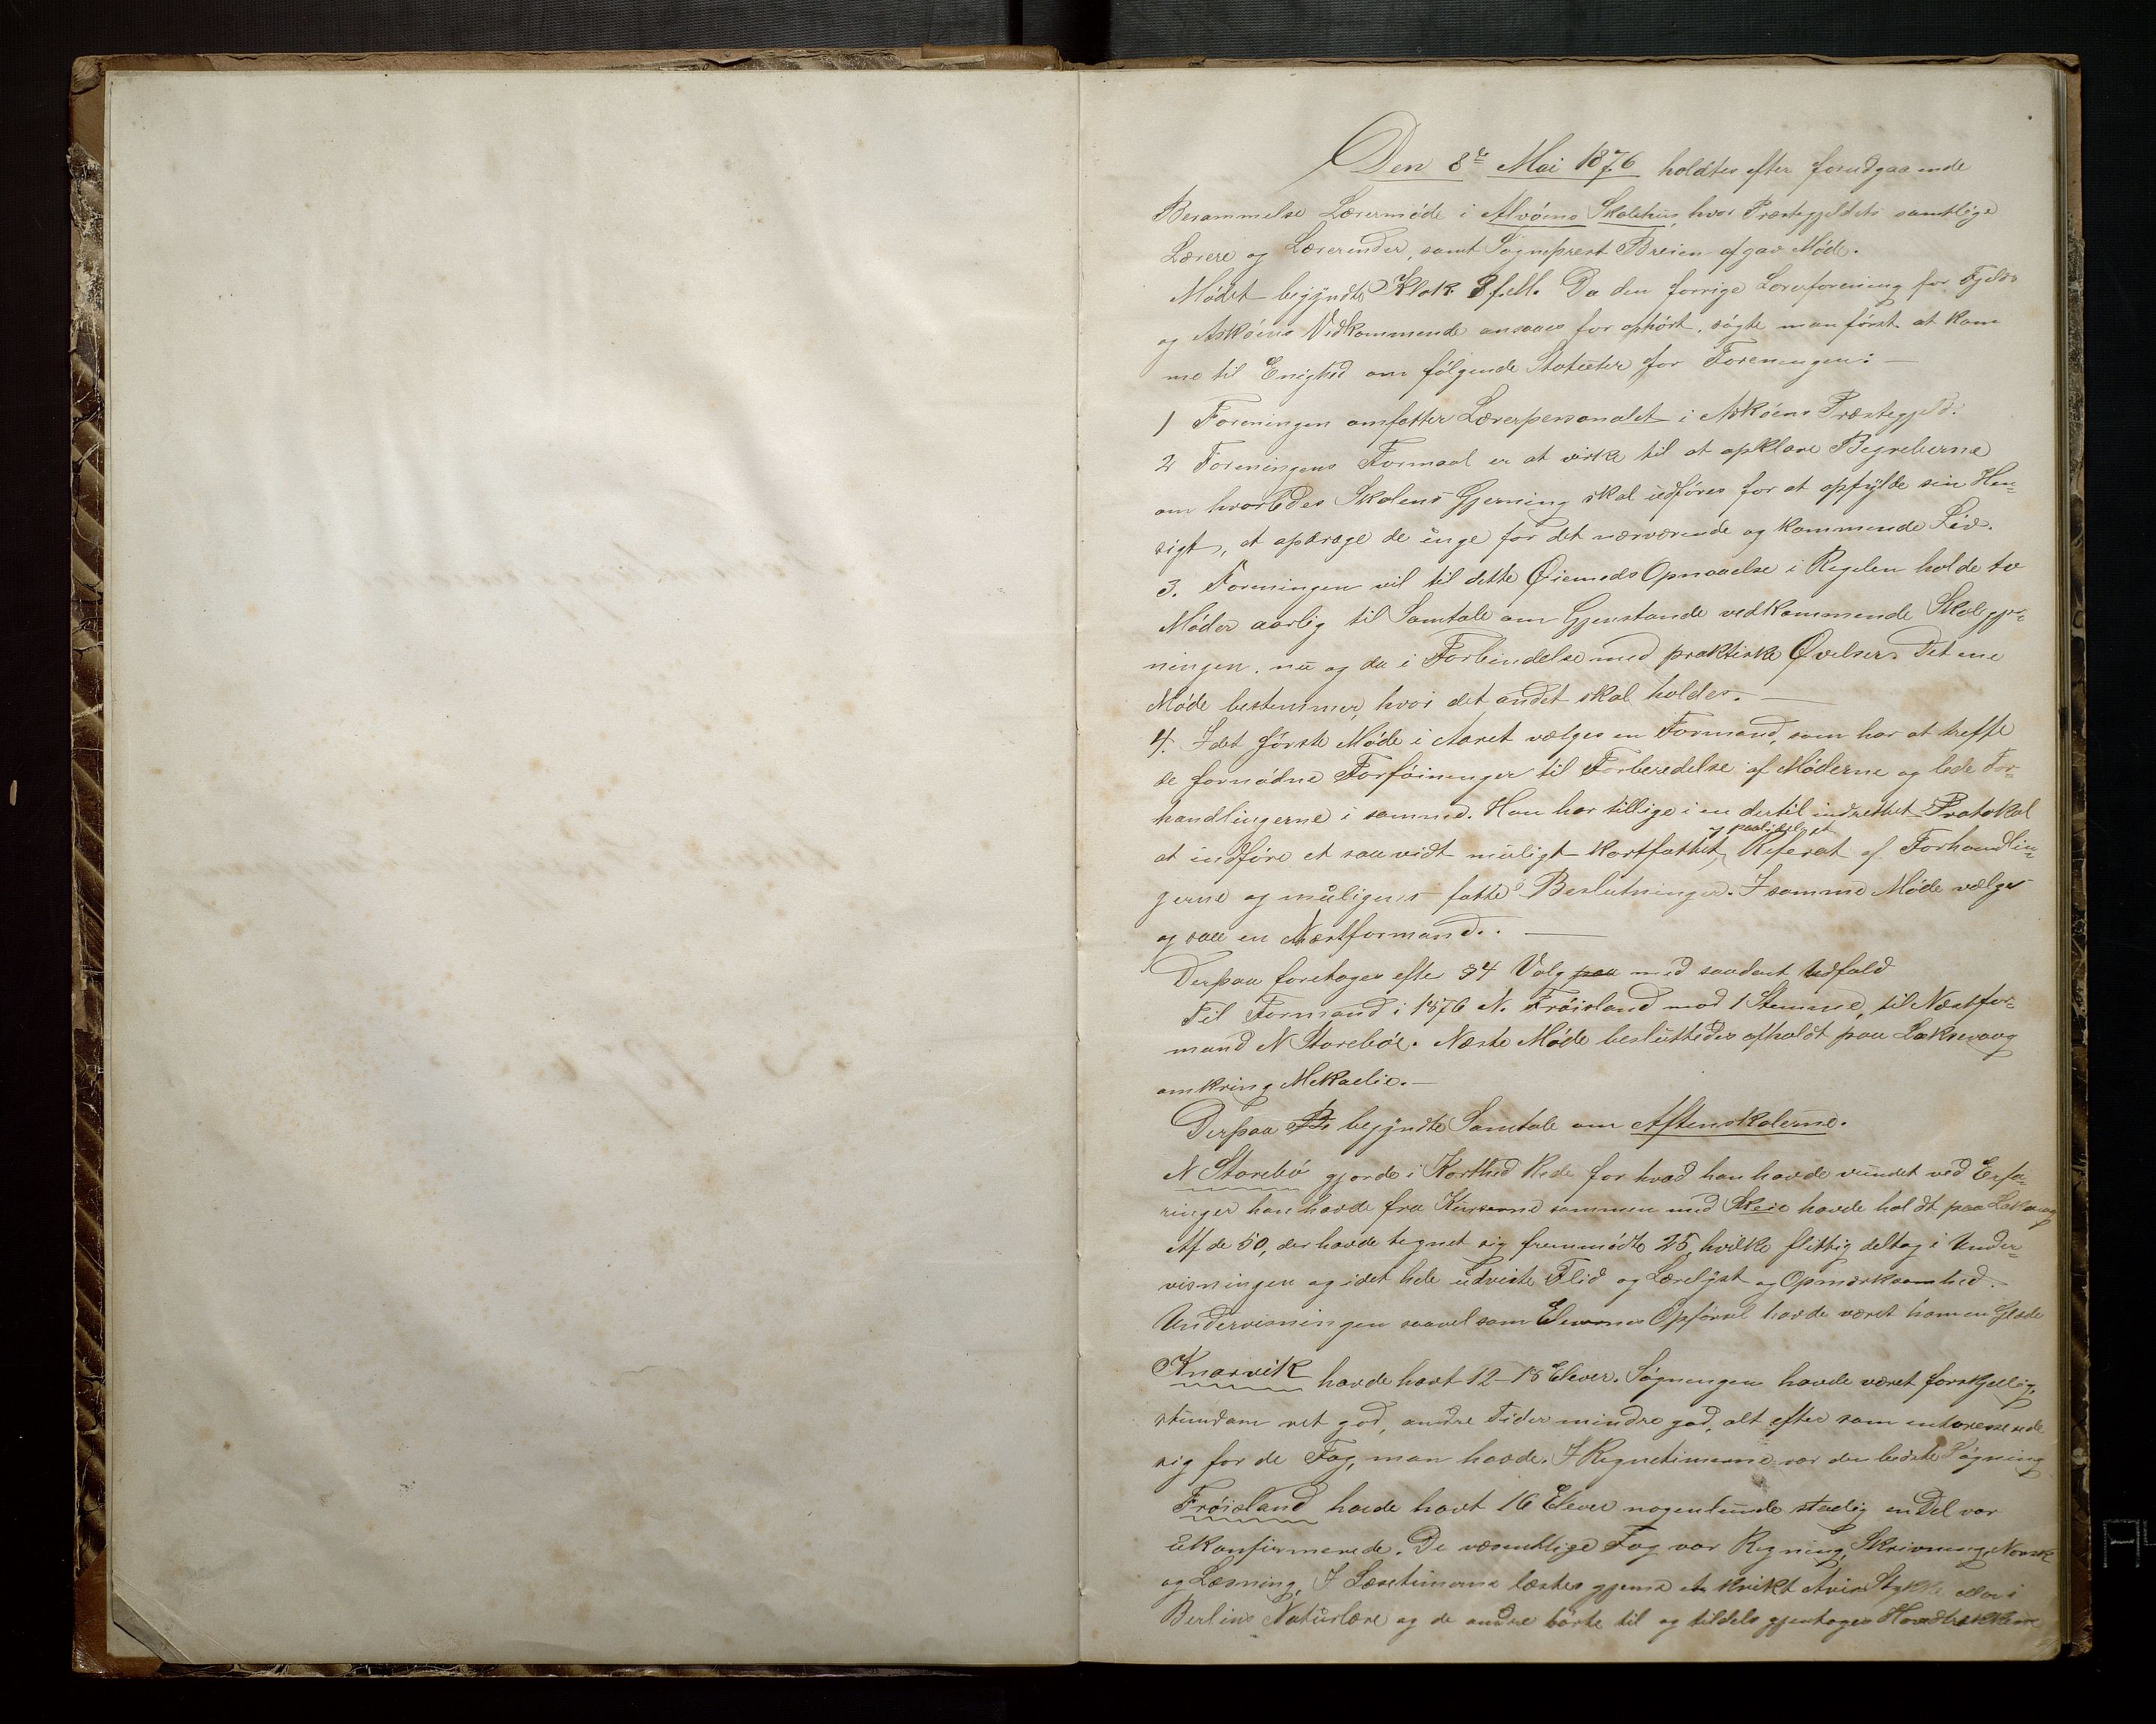 Den 8de Mai 1876 holdtes efter forudgaaende
Berammelse Lærermøde i Alvøens Skolehus, hvor Præstegjeldets samtlige
Lærere og Lærerinder, samt Sognprest Breien afgav Møde.
Mødet begyndte Klok. 8 f.M. Da den forrige Lærerforening for Fjelds
og Askøens Vedkommende ansaaes for ophørt, søgte man først at kom
me til Enighed om følgende Statuter for Foreningen: —
1 Foreningen omfatter Lærerpersonalet i Askøens Præstegjeld.
2 Foreningens Formaal er at virke til at opklare Begreberne
om hvorledes Skolens Gjerning skal udføres for at opfylde sin Hen=
sigt, at opdrage de unge for det nærværende og kommende Liv.
3. Foreningen vil til dette Øiemeds Opnaaelse i Regelen holde to
Møder aarlig til Samtale om Gjenstande vedkommende Skolegjer=
ningen, nu og da i Forbindelse med praktiske Øvelser. Det ene
Møde bestemmer, hvor det andet skal holdes. —
4. I det første Møde i Aaret vælges en Formand, som har at treffe
de fornødne Forføininger til Forberedelse af Møderne og lede For=
handlingerne i samme. Han har tillige i en dertil indrettet Protokol
og paalideligt
at indføre et saavidt muligt kortfattet Referat af Forhandlin=
gerne og muligens fatte Beslutninger. I samme Møde vælges
og saa en Næstformand. —
Derpaa foretages efter § 4 Valg paa med saadant Udfald
Til Formand i 1876 N. Frøisland mod 1 Stemme, til Næstfor=
mand N Storebøe. Næste Møde besluttedes afholdt paa Laksevaag
omkring Mekaelis. —
Derpaa Be begyndte Samtale om Aftenskolerne.
N Storebø gjorde i Korthed Rede for hvad han havde vundet ved Erfa=
ringer han havde fra Kurserne sammen med Skeie havde holdt paa Laksevaag
Af de 50, der havde tegnet sig fremmødte 25, hvilke flittig deltog i Under=
visningen og i det hele udviste Flid og Lærelyst og Opmærksomhed.
Undervisningen saavel som Elevernes Opførsel havde været ham en Glæde
Knarvik havde havt 12–18 Elever. Søgningen havde været forskjellig,
stundom ret god, andre Tider mindre god, alt efter som interesserede
sig for de Fag, man havde. I Regnetimerne var den bedste Søgning
Frøisland havde havt 16 Elever nogenlunde stadig en Del var
ukonfirmerede. De væsentlige Fag var Regning, Skrivning, Norsk
og Læsning. I Læsetimerne læstes gjerne et kvikt Avis Stykke eller i
Berlins Naturlære og de andre hørte til og tildels gjentoges Hovedtrækkene